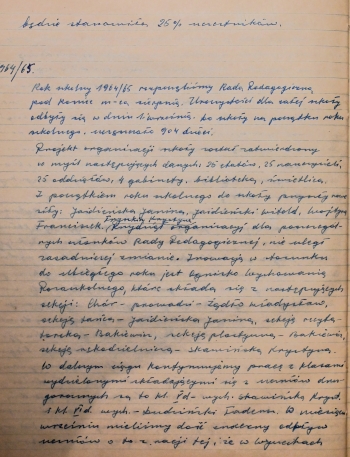 będzie stanowiła 25% uczestników.
1964/65.
Rok szkolny 1964/65 rozpoczęliśmy Radą Pedagogiczną
pod koniec m-ca sierpnia. Uroczystości dla całej szkoły
odbyły się w dniu 1 września. Do szkoły na początku roku
szkolnego uczęszczało 904 dzieci.
Projekt organizacji szkoły został zatwierdzony
w myśl następujących danych: 26 etatów, 25 nauczycieli,
25 oddziałów, 4 gabinety, biblioteka, świetlica.
Z początkiem roku szkolnego do szkoły przybyły
Jaździńska Janina, Jaździński Witold,
Franciszek. Przydział organizacji dla poszczegól-
nych członków Rady Pedagogicznej, nie uległ
zasadniczej zmianie. Inowacją w stosunku
do ubiegłego roku jest Ognisko Wychowania
Pozaszkolnego, które składa się z następujących
sekcji: Chór - prowadzi - Żądło Władysław,
sekcja tańca - Jaździńska Janina, sekcja recyta-
torska - sekcja plastyczna -
sekcja szkodzielnicza - Skawińska Krystyna.
W dalszym ciągu kontynuujemy pracę z klasami
wydzielonymi składającymi się z uczniów dru-
gorocznych są to kl. wych. Skawińska Kryst.
i kl. wych. - Tadeusz. W miesiącu
wrześniu mieliśmy dość znaczny odpływ
uczniów a to z racji tej, że w